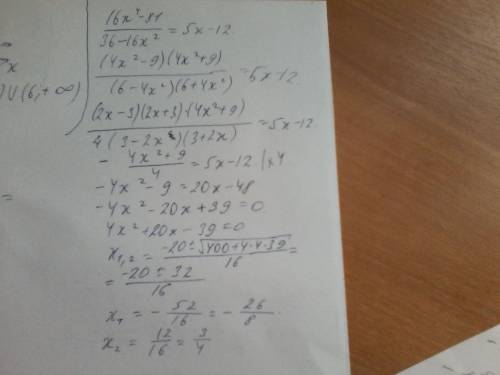 x
)∪(6,+∞)
=
\frac{16x^4-81}{36-16x^2} = 5x-12
\frac{(4x^2-9)(4x^2+9)}{(6-4x^2)(6+4x^2)} = 5x-12
\frac{(2x-3)(2x+3)·(4x^2+9)}{4(3-2x)(3+2x)} = 5x-12
-\frac{4x^2+9}{4} = 5x-12 |x4
-4x^2-9=20x-48
-4x^2-20x+39=0
4x^2+20x-39=0
x_{1,2} = \frac{-20±\sqrt{400+4·4·39}}{16} =
= \frac{-20±32}{16}
x_1 = -\frac{52}{16} = -\frac{26}{8}.
x_2 = \frac{12}{16} = \frac{3}{4}